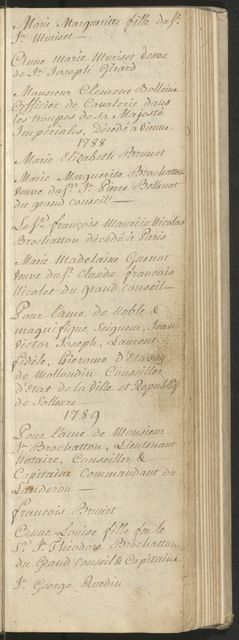 Marie Marguerite fille du Sr.
Jn. Muriset —
Cune Marie Muriset veuve
de Sr. Joseph Girard
Monsieur Clement Bolleine
Officier de Cavalerie dans
les troupes de Sa Majesté
Impériales, décédé à Vienne
1788
Marie Elizabeth Brunet
Marie Marguerite Brochatton
veuve du Sr. Jn. Pierre
du grand conseil —
Le Sr. françois Maurice Nicolas
Brochatton décédé à Paris
Marie Madelaine Guenot
veuve du Sr. Claude francois
Nicolet du Grand Conseil
Pour l'ame de Noble &
magnifique Seigneur, Jean
Victor Joseph, Laurent
fidèle, Hierome d'Estavay
de Mollondin Conseiller
d'Etat de la Ville et Republiq
de Solleure
1789
Pour l'ame de Monsieur
Jn. Brochatton, Lieutenant
Notaire, Conseiller &
Capitaine Commandant du
Landeron —
françois Brunet
Cune Louise fille feu le
Sr. Jn. Théodore Brochatton
du Grand Conseil & Capitaine
Jn. George Ruedin